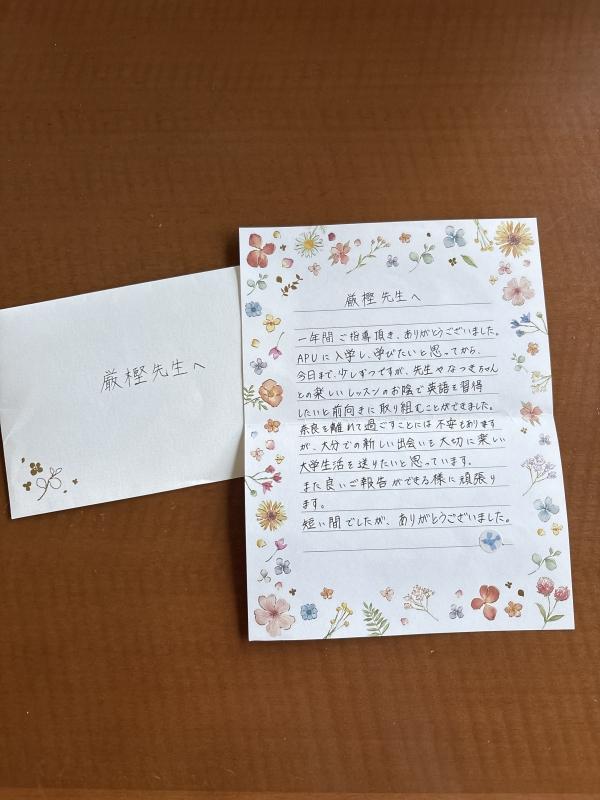 厳樫先生へ
厳樫先生へ
一年間ご指導頂き、ありがとうございました。
APUに入学し、学びたいと思ってから、
今日まで、少しずつですが、先生やなつきちゃん
との楽しいレッスンのお陰で英語を習得
したいと前向きに取り組むことができました。
奈良を離れて過ごすことには不安もあります
が、大分での新しい出会いを大切に楽しい
大学生活を送りたいと思っています。
また良いご報告ができる様に頑張り
ます。
短い間でしたが、ありがとうございました。